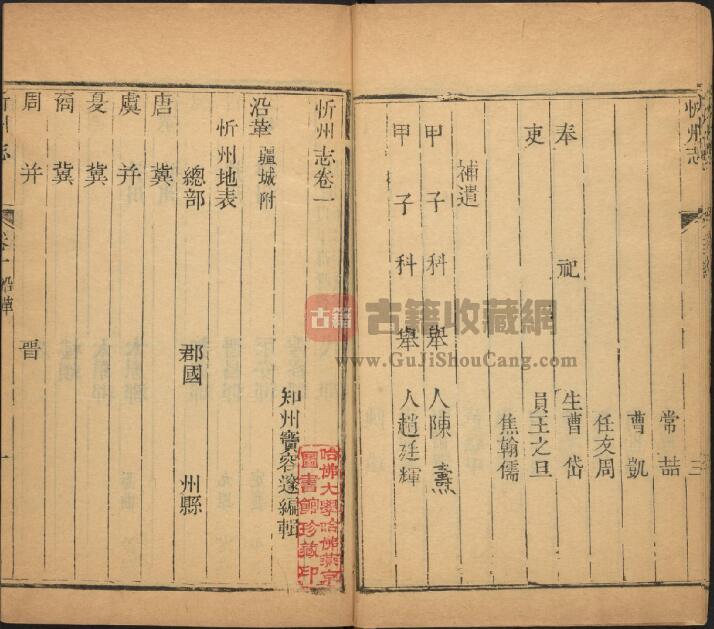 忻州志 三
常喆
曹凱
任友周
奉祀生曹岱
吏員王之旦
焦翰儒
補遺
甲子科舉人陳燾
甲子科舉人趙廷輝
忻州志卷一
知州竇容邃編輯
沿革 疆城附
忻州地表
總部 郡國 州縣
唐 冀
虞 并
夏 冀
商 冀
周 并 晉
忻州志 卷一 沿革 一
哈佛大學哈佛燕京
圖書館珍藏印
古籍 古籍收藏網
www.GuJiShouCang.com